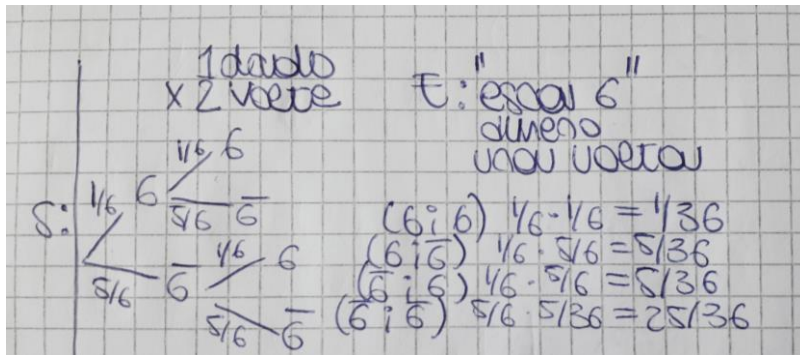 1 dado
x 2 volte
E: "esca 6"
almeno
una volta
S:
1/6 6 1/6 6
5/6 6̅
5/6 6̅ 1/6 6
5/6 6̅
(6; 6) 1/6 · 1/6 = 1/36
(6; 6̅) 1/6 · 5/6 = 5/36
(6̅; 6) 1/6 · 5/6 = 5/36
(6̅; 6̅) 5/6 · 5/36 = 25/36